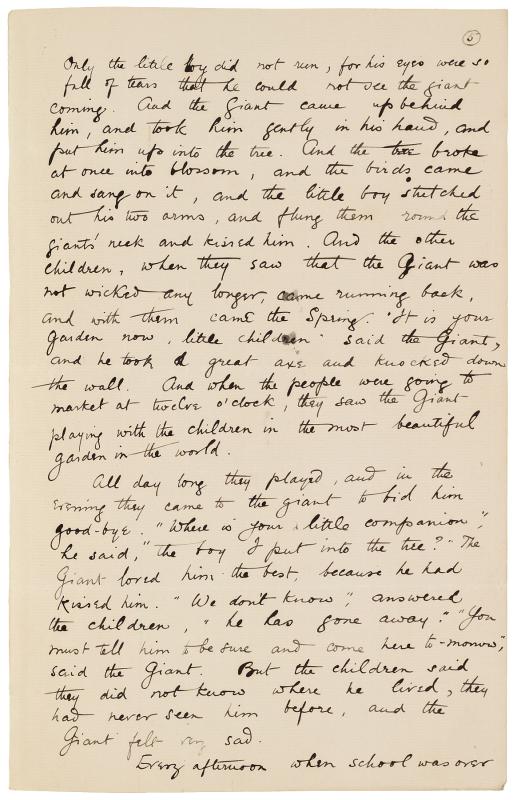 5
Only the little boy did not run, for his eyes were so
full of tears that he could not see the giant
coming. And the Giant came up behind
him, and took him gently in his hand, and
put him up into the tree. And the tree broke
at once into blossom, and the birds came
and sang on it, and the little boy stretched
out his two arms, and flung them round the
giants' neck and kissed him. And the other
children, when they saw that the Giant was
not wicked any longer, came running back,
and with them came the Spring. "It is your
garden now, little children" said the Giant,
and he took a great axe and knocked down
the wall. And when the people were going to
market at twelve o'clock, they saw the Giant
playing with the children in the most beautiful
garden in the world.
All day long they played, and in the
evening they came to the giant to bid him
good-bye. "Where is your little companion",
he said, "the boy I put into the tree?" The
Giant loved him the best, because he had
kissed him. "We don't know", answered
the children, "he has gone away." "You
must tell him to be sure and come here to-morrow",
said the Giant. But the children said
they did not know where he lived, they
had never seen him before, and the
Giant felt very sad.
Every afternoon when school was over